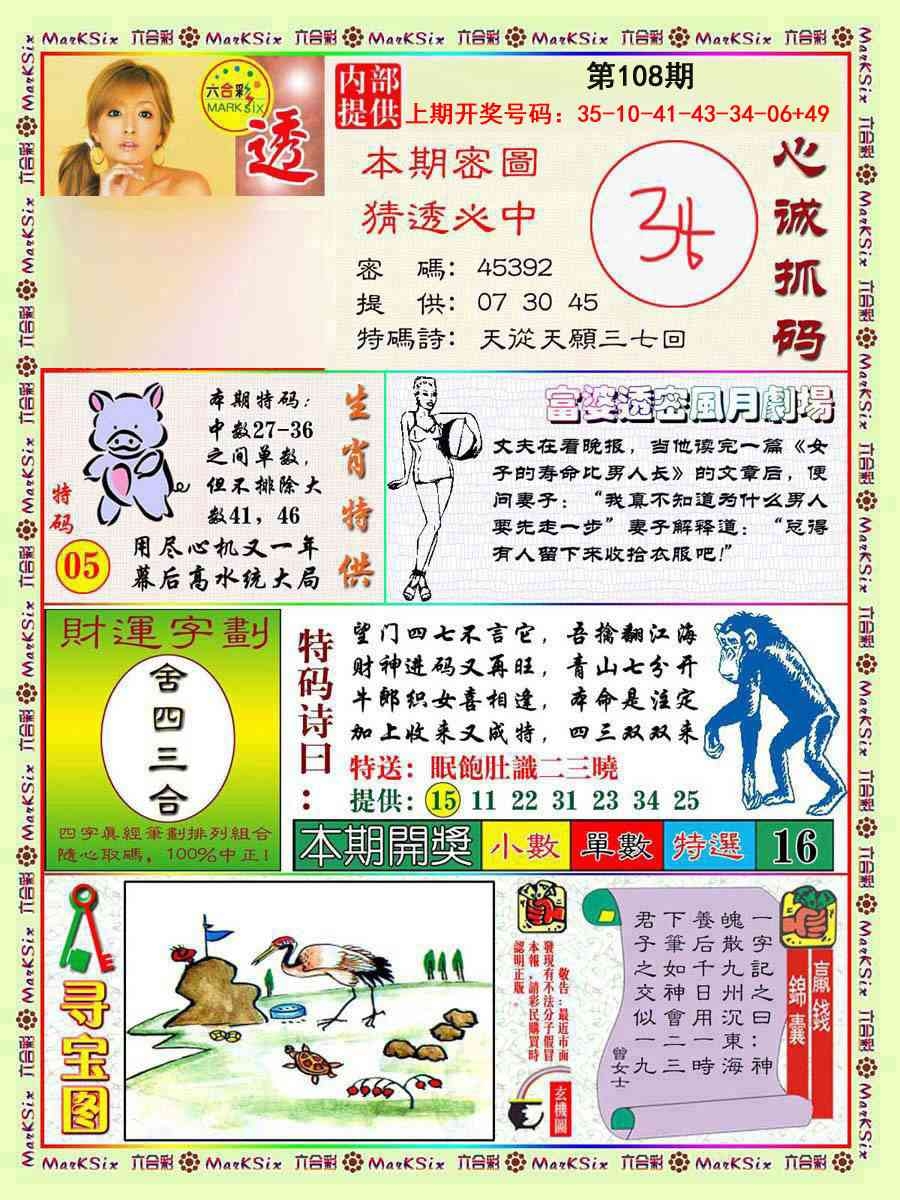 MarKSix 六合彩 MarKSix 六合彩 MarKSix 六合彩 MarKSix 六合彩 MarKSix 六合彩
六合彩
MARK SIX
透
内部
提供
第108期
上期开奖号码：35-10-41-43-34-06+49
本期密圖
猜透必中
密 碼：45392
提 供：07 30 45
特碼詩：天從天願三七回
心诚抓码
本期特码：
中数27-36
之间单数，
但不排除大
数41，46
特码
05
用尽心机又一年
幕后高水统大局
生肖特供
富婆透密風月劇場
丈夫在看晚报，当他读完一篇《女
子的寿命比男人长》的文章后，便
问妻子：“我真不知道为什么男人
要先走一步”妻子解释道：“总得
有人留下来收拾衣服吧！”
財運字劃
舍四三合
四字真經筆劃排列組合
隨心取碼，100%中正！
特码诗曰：
望门四七不言它，吾擒翻江海
财神进码又再旺，青山七分开
牛郎织女喜相逢，本命是注定
加上收来又成特，四三双双来
特送：眠飽肚識二三曉
提供：15 11 22 31 23 34 25
本期開獎 小數 單數 特選 16
寻宝图
敬告：最近市面
發現有不法分子假冒
本報，請彩民購買時
認明正版。
玄機圖
一字記之曰：神
魄散九州沉東海
養后千日用一時
下筆如神會二三
君子之交似一九
曾女士
贏錢
錦囊
MarKSix 六合彩 MarKSix 六合彩 MarKSix 六合彩 MarKSix 六合彩 MarKSix 六合彩